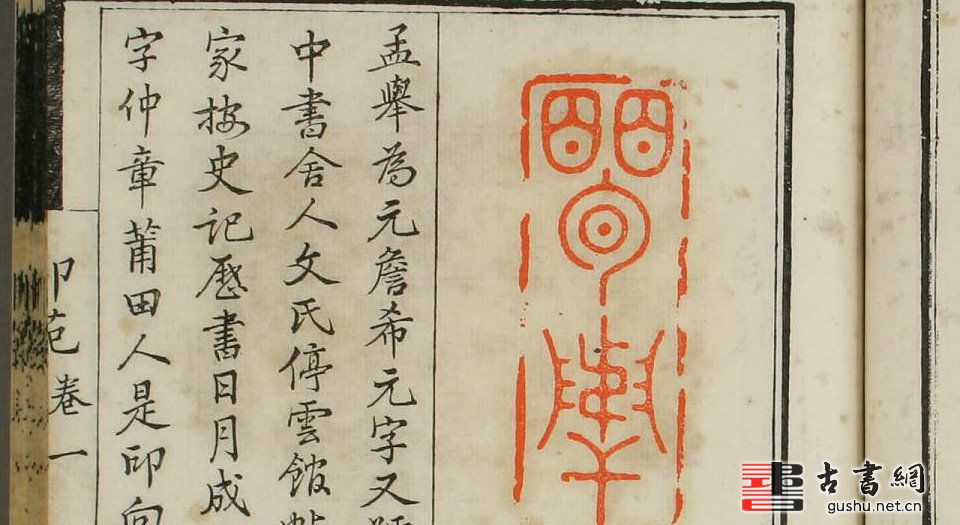 孟舉為元詹希元字又
中書舍人文氏停雲館帖
家按史記厯書日月成
字仲章莆田人是印向
印苞卷一
古書網
gushu.net.cn